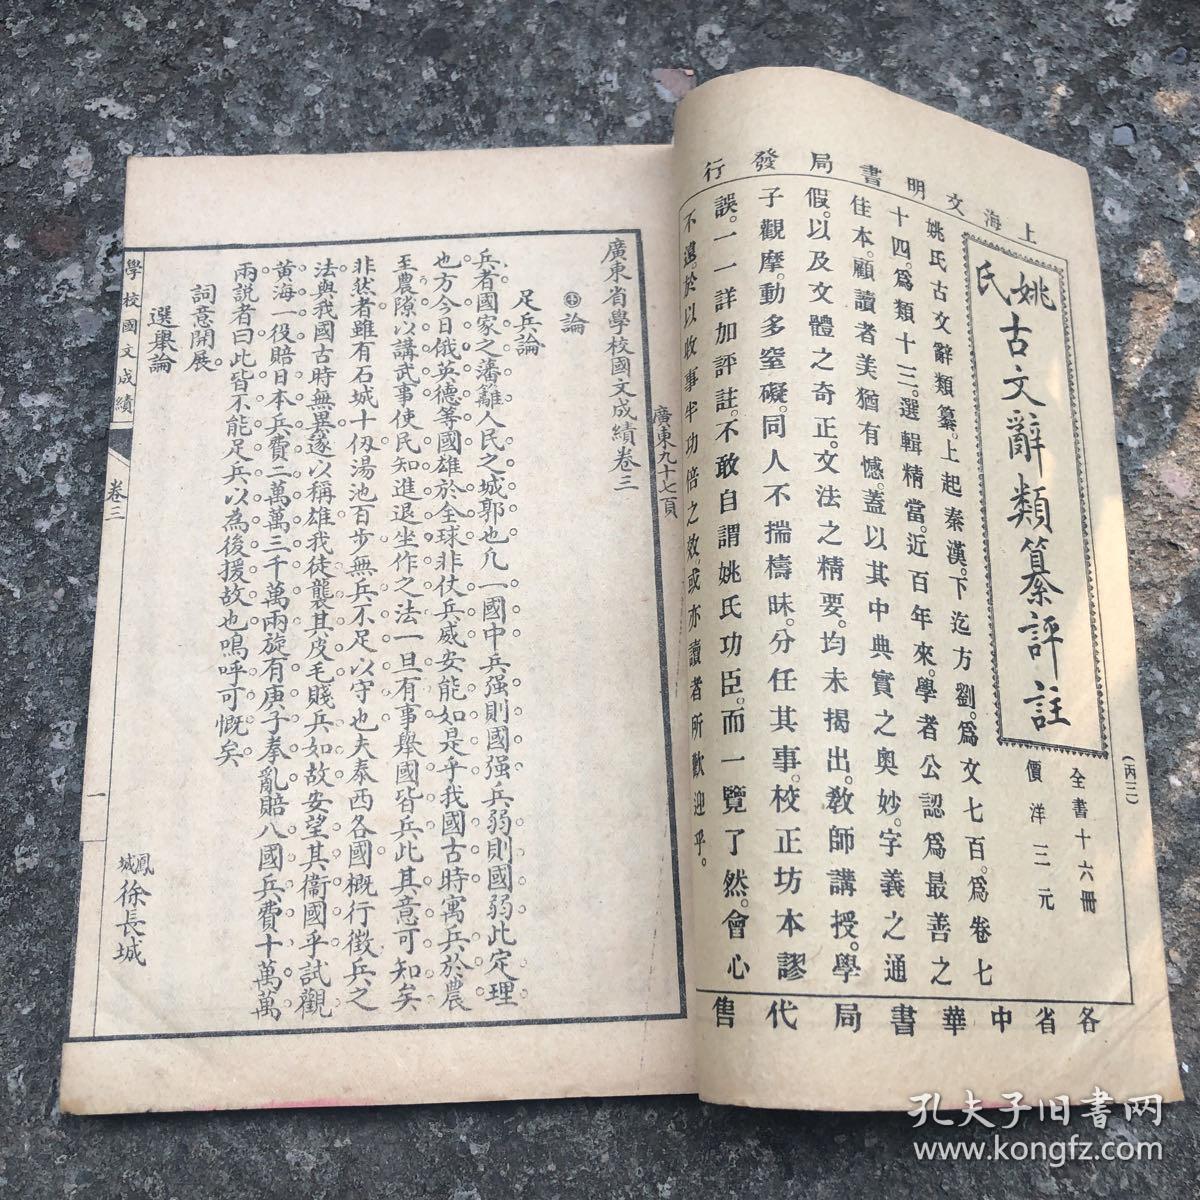 上海文明書局發行
姚氏古文辭類纂評註
（丙三）
全書十六冊
價洋三元
姚氏古文辭類纂。上起秦漢。下迄方劉。爲文七百。爲卷七
十四。爲類十三。選輯精當。近百年來。學者公認爲最善之
佳本。顧讀者美猶有憾。蓋以其中典實之奧妙。字義之通
假。以及文體之奇正。文法之精要。均未揭出。教師講授。學
子觀摩。動多窒礙。同人不揣檮昧。分任其事。校正坊本謬
誤。一一詳加評註。不敢自謂姚氏功臣。而一覽了然。會心
不遠。於以收事半功倍之效。或亦讀者所歡迎乎。
各省中華書局代售
廣東九十七頁
廣東省學校國文成績卷三
論
足兵論
兵者國家之藩籬人民之城郭也凡一國中兵强則國强兵弱則國弱此定理
也方今日俄英德等國雄於全球非仗兵威安能如是乎我國古時寓兵於農
至農隙以講武事使民知進退坐作之法一旦有事舉國皆兵此其意可知矣
非然者雖有石城十仞湯池百步無兵不足以守也夫泰西各國概行徵兵之
法與我國古時無異遂以稱雄我徒襲其皮毛賤兵如故安望其衞國乎試觀
黃海一役賠日本兵費二萬萬三千萬兩旋有庚子拳亂賠八國兵費十萬萬
兩說者曰此皆不能足兵以為後援故也嗚呼可慨矣
詞意開展
選舉論
鳳城 徐長城
學校國文成績
卷三
一
孔夫子旧书网
www.kongfz.com